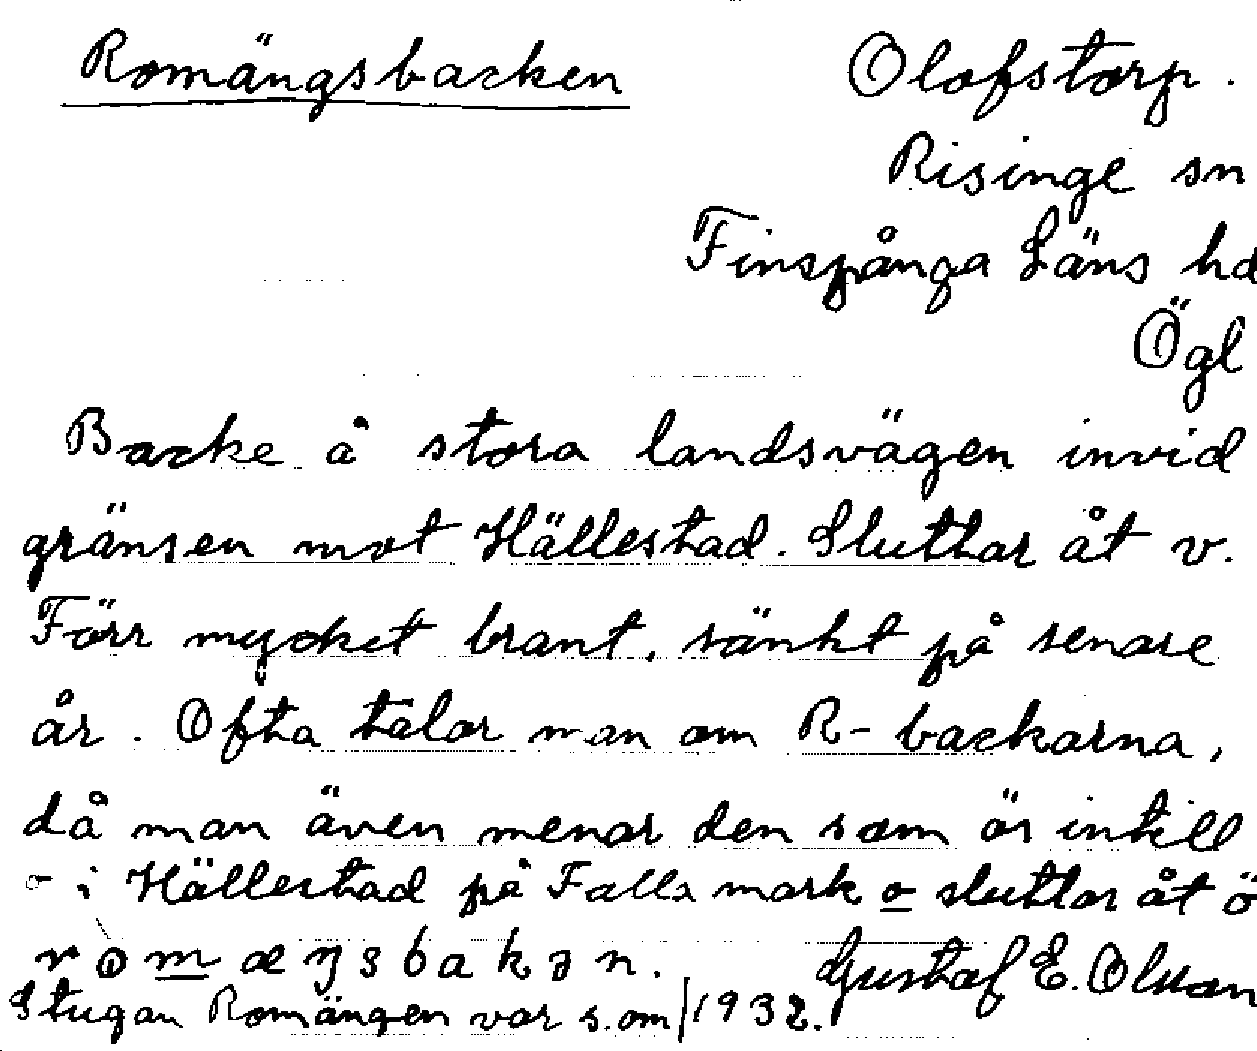 Romängsbacken
Olofstorp.
Risinge sn
Finspånga Läns hd
Ögl
Backe å stora landsvägen invid
gränsen mot Hällestad. Sluttar åt v.
Förr mycket brant, sänkt på senare
år. Ofta talar man om R-backarna,
då man även menar den som är intill
- i Hällestad på Falla mark o sluttar åt ö
Gustaf E. Olsson
Stugan Romängen var s. om 1932.